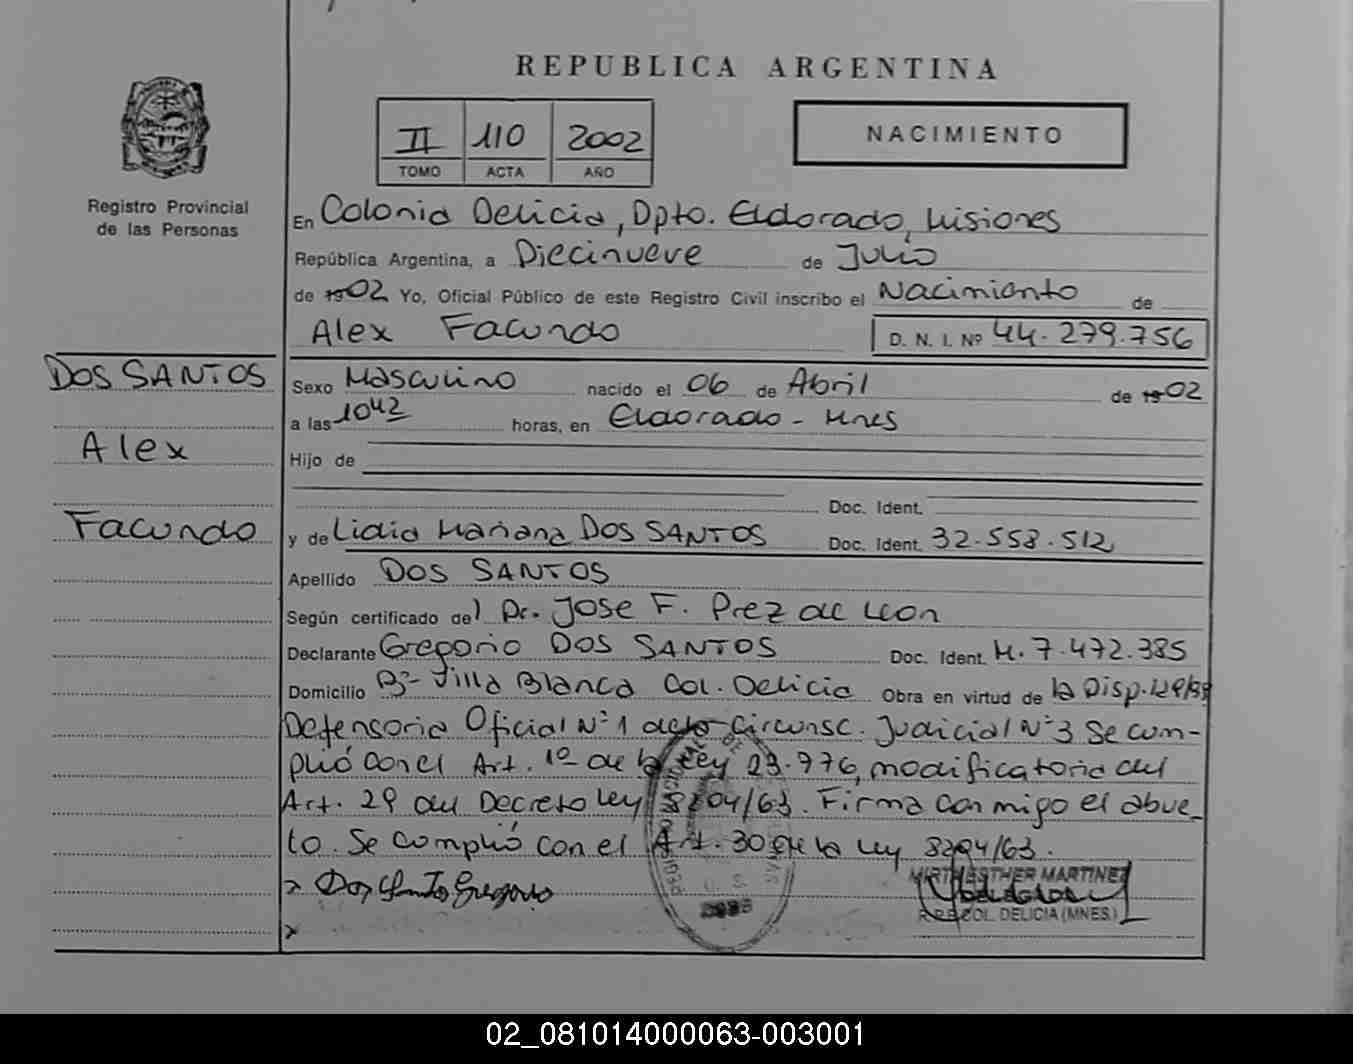 REPUBLICA ARGENTINA
II 110 2002
TOMO ACTA AÑO
NACIMIENTO
Registro Provincial
de las Personas
En Colonia Delicia, Dpto. Eldorado, Misiones
República Argentina, a Diecinueve de Julio
de 1902 Yo, Oficial Público de este Registro Civil inscribo el Nacimiento de
Alex Facundo D. N. I. Nº 44.279.756
DOS SANTOS
Alex
Facundo
Sexo Masculino nacido el 06 de Abril de 1902
a las 1042 horas, en Eldorado - Mnes
Hijo de
Doc. Ident.
y de Lidia Mariana DOS SANTOS Doc. Ident. 32.558.512
Apellido DOS SANTOS
Según certificado del Dr. Jose F. Prez de Leon
Declarante Gregorio DOS SANTOS Doc. Ident. M. 7.472.385
Domicilio Bº Villa Blanca Col. Delicia Obra en virtud de la Disp.
Defensoria Oficial Nº 1 Circunsc. Judicial Nº 3 Se cum-
plió con el Art. 1º de la Ley 23.776, modificatoria del
Art. 29 del Decreto Ley 8204/63. Firma conmigo el abue-
lo. Se cumplió con el Art. 30 de la Ley 8204/63.
Dos Santos Gregorio
MIRTHA ESTHER MARTINEZ
COL. DELICIA (MNES.)
02_081014000063-003001